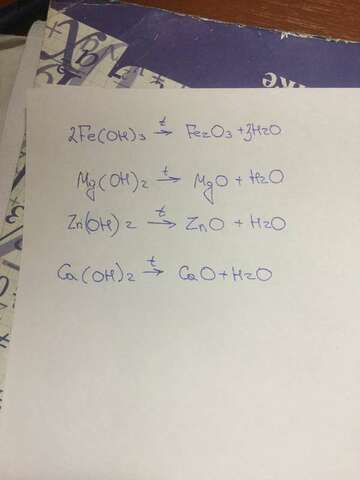 2Fe(OH)3 t→ Fe2O3 + 3H2O
Mg(OH)2 t→ MgO + H2O
Zn(OH)2 t→ ZnO + H2O
Ca(OH)2 t→ CaO + H2O